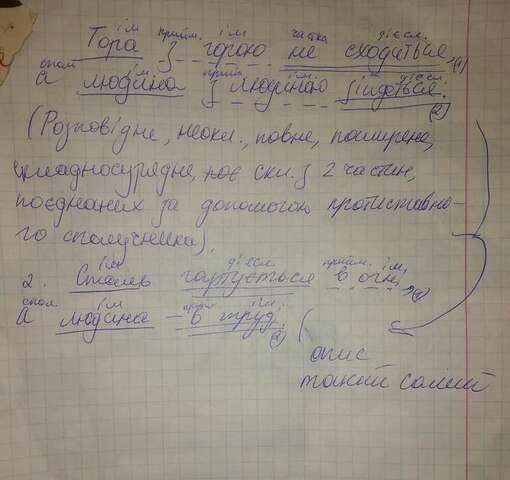 ім прийм. ім частка дієсл.
Гора з горою не сходиться, (1)
спол ім прийм ім. дієсл.
а людина з людиною зійдеться.
(2)
(Розповідне, неокл., повне, поширене,
складносурядне, скл. з 2 частин,
поєднаних за допомогою протиставно-
го сполучника).
ім дієсл прийм. ім.
2. Сталь гартується в огні, (1)
спол ім прийм ім.
а людина – в труді. (2)
(опис
такий самий